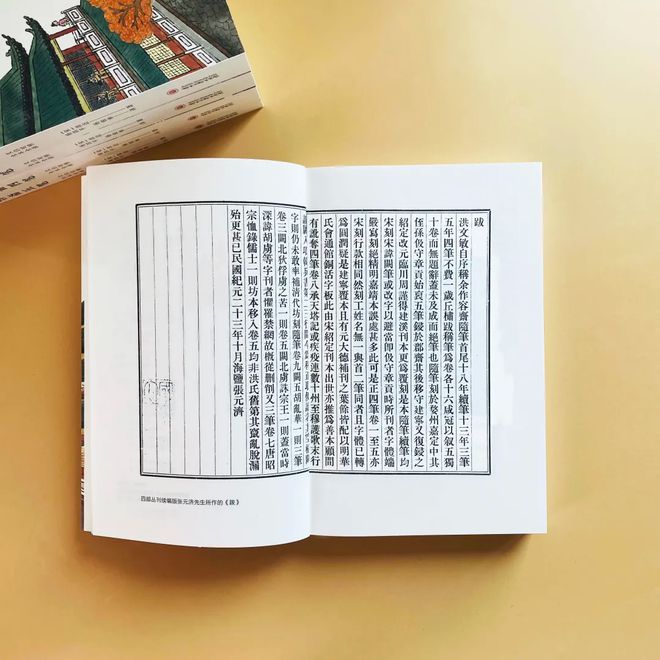 跋
洪文敏自序稱余作容齋隨筆首尾十八年續筆十三年三筆
五年四筆不費一歲丘橚跋稱筆爲卷各十六咸冠以叙五獨
十卷而無題辭蓋未及成而絕筆也隨筆刻於婺州嘉定中其
侄孫伋守章貢始裒五筆刻於郡齋其後移守建寧又復鋟之
紹定改元臨川周謹得建溪刊本更爲覆刻是本隨筆續筆均
宋刻宋諱闕筆或改字以避當卽伋守章貢時所刊者字體端
嚴寫刻絕精明嘉靖本誤處甚多此可是正四筆卷一至五亦
宋刻行款相同然刻工姓名無一與首二筆同者且字體已轉
爲圓潤疑是建寧覆本且有元大德補刊之葉餘皆配以明華
氏會通館銅活字板此由宋紹定刊本出世亦推爲善本顧間
有譌奪四筆卷八承天塔記或疾疫連數十州至穆護歌末行
字則仍未敢率補清代坊刻隨筆卷九闕五胡亂華一則三筆
卷三闕北狄俘虜之苦一則卷五闕北虜誅宗王一則蓋當時
深諱胡虜等字刊者懼罹禁網故概從刪削又三筆卷七唐昭
宗恤錄儒士一則坊本移入卷五均非洪氏舊第其竄亂脫漏
殆更甚已民國紀元二十三年十月海鹽張元濟
四部丛刊续编版张元济先生所作的《跋》